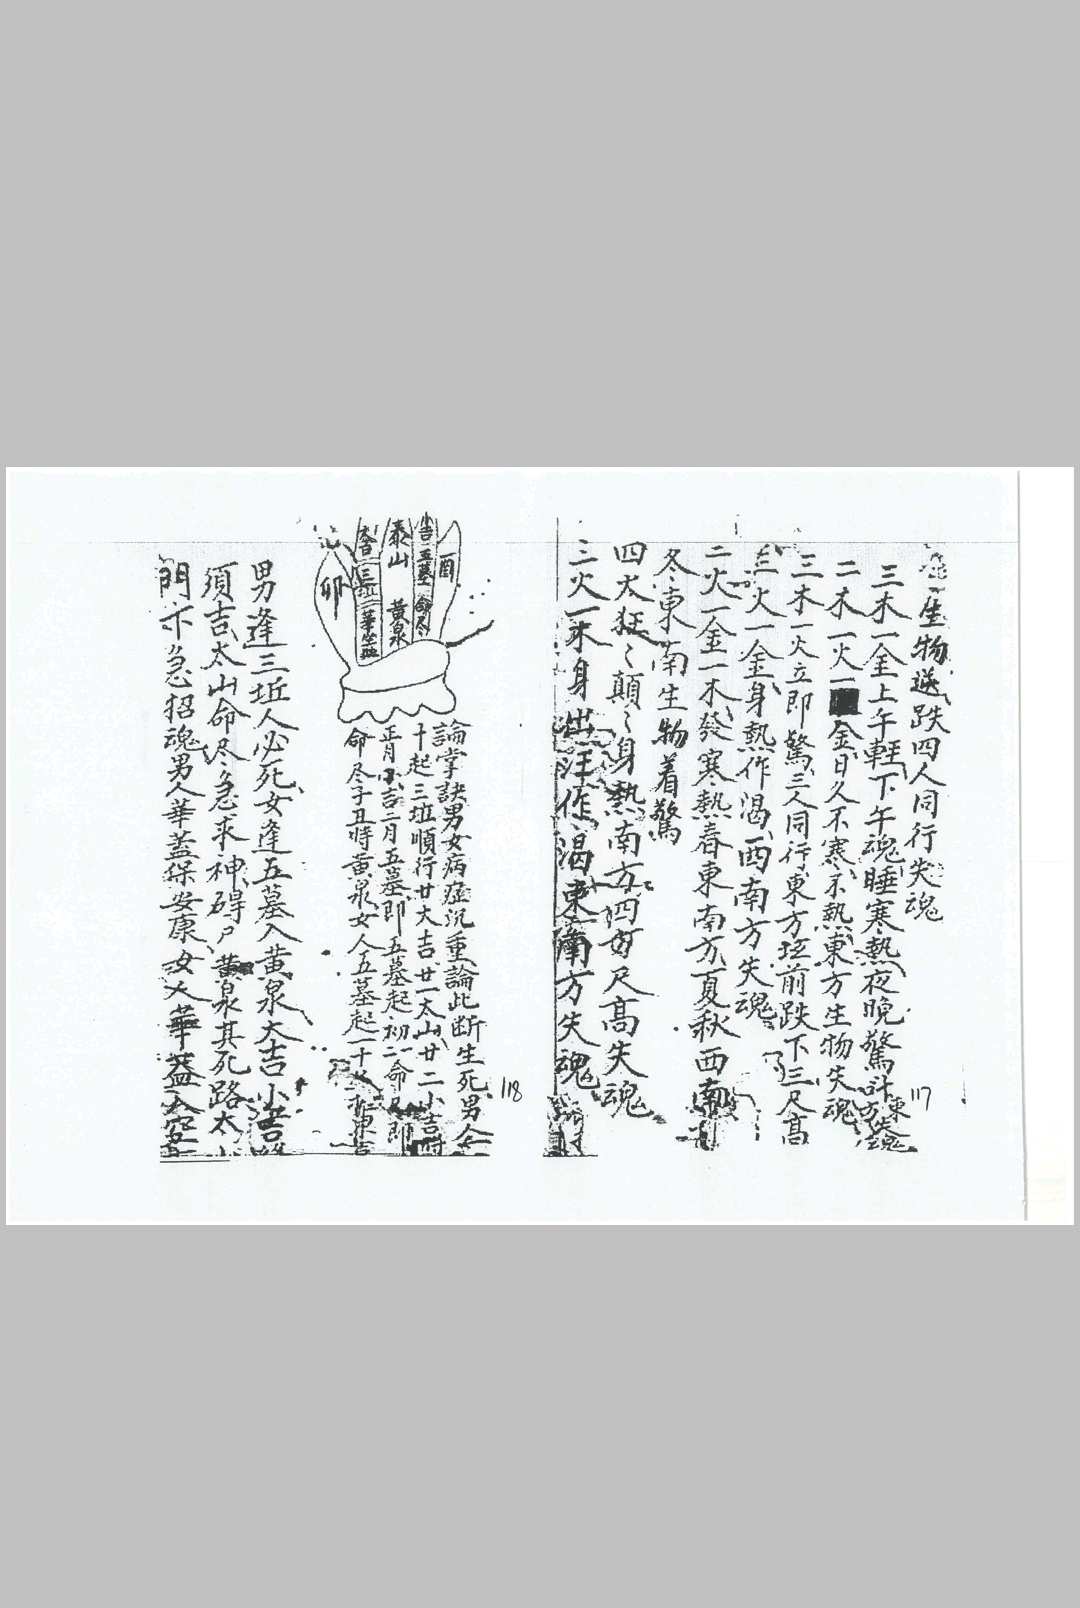 生物送跌四人同行失魂
三木一金上午輊下午魂睡寒熱夜晚驚
東方
二木一火一金日久不寒不熱東方生物失魂
三木一火立即驚三人同行東方坵前跌下三尺高
三火一金身熱作渴西南方失魂
二火一金一木發寒熱春東南方夏秋西南
冬東南生物着驚
四火狂〻顛〻身熱南方四尺高失魂
三火一木身出汗作渴東南方失魂
117
酉
小吉 五墓 命尽
泰山 黃泉
大吉 三坵 華盖
卯
論掌訣男女病症沉重論此断生死男人
十起三坵順行廿大吉廿一太山廿二小吉
正月小吉二月五墓即五墓起初一命尽即
命尽子丑時黃泉女人五墓起一十
118
男逢三坵人必死女逢五墓入黃泉大吉小吉
須吉太山命尽急求神碍尸黃泉其死路太山
門外急招魂男人華盖保安康女人華盖入